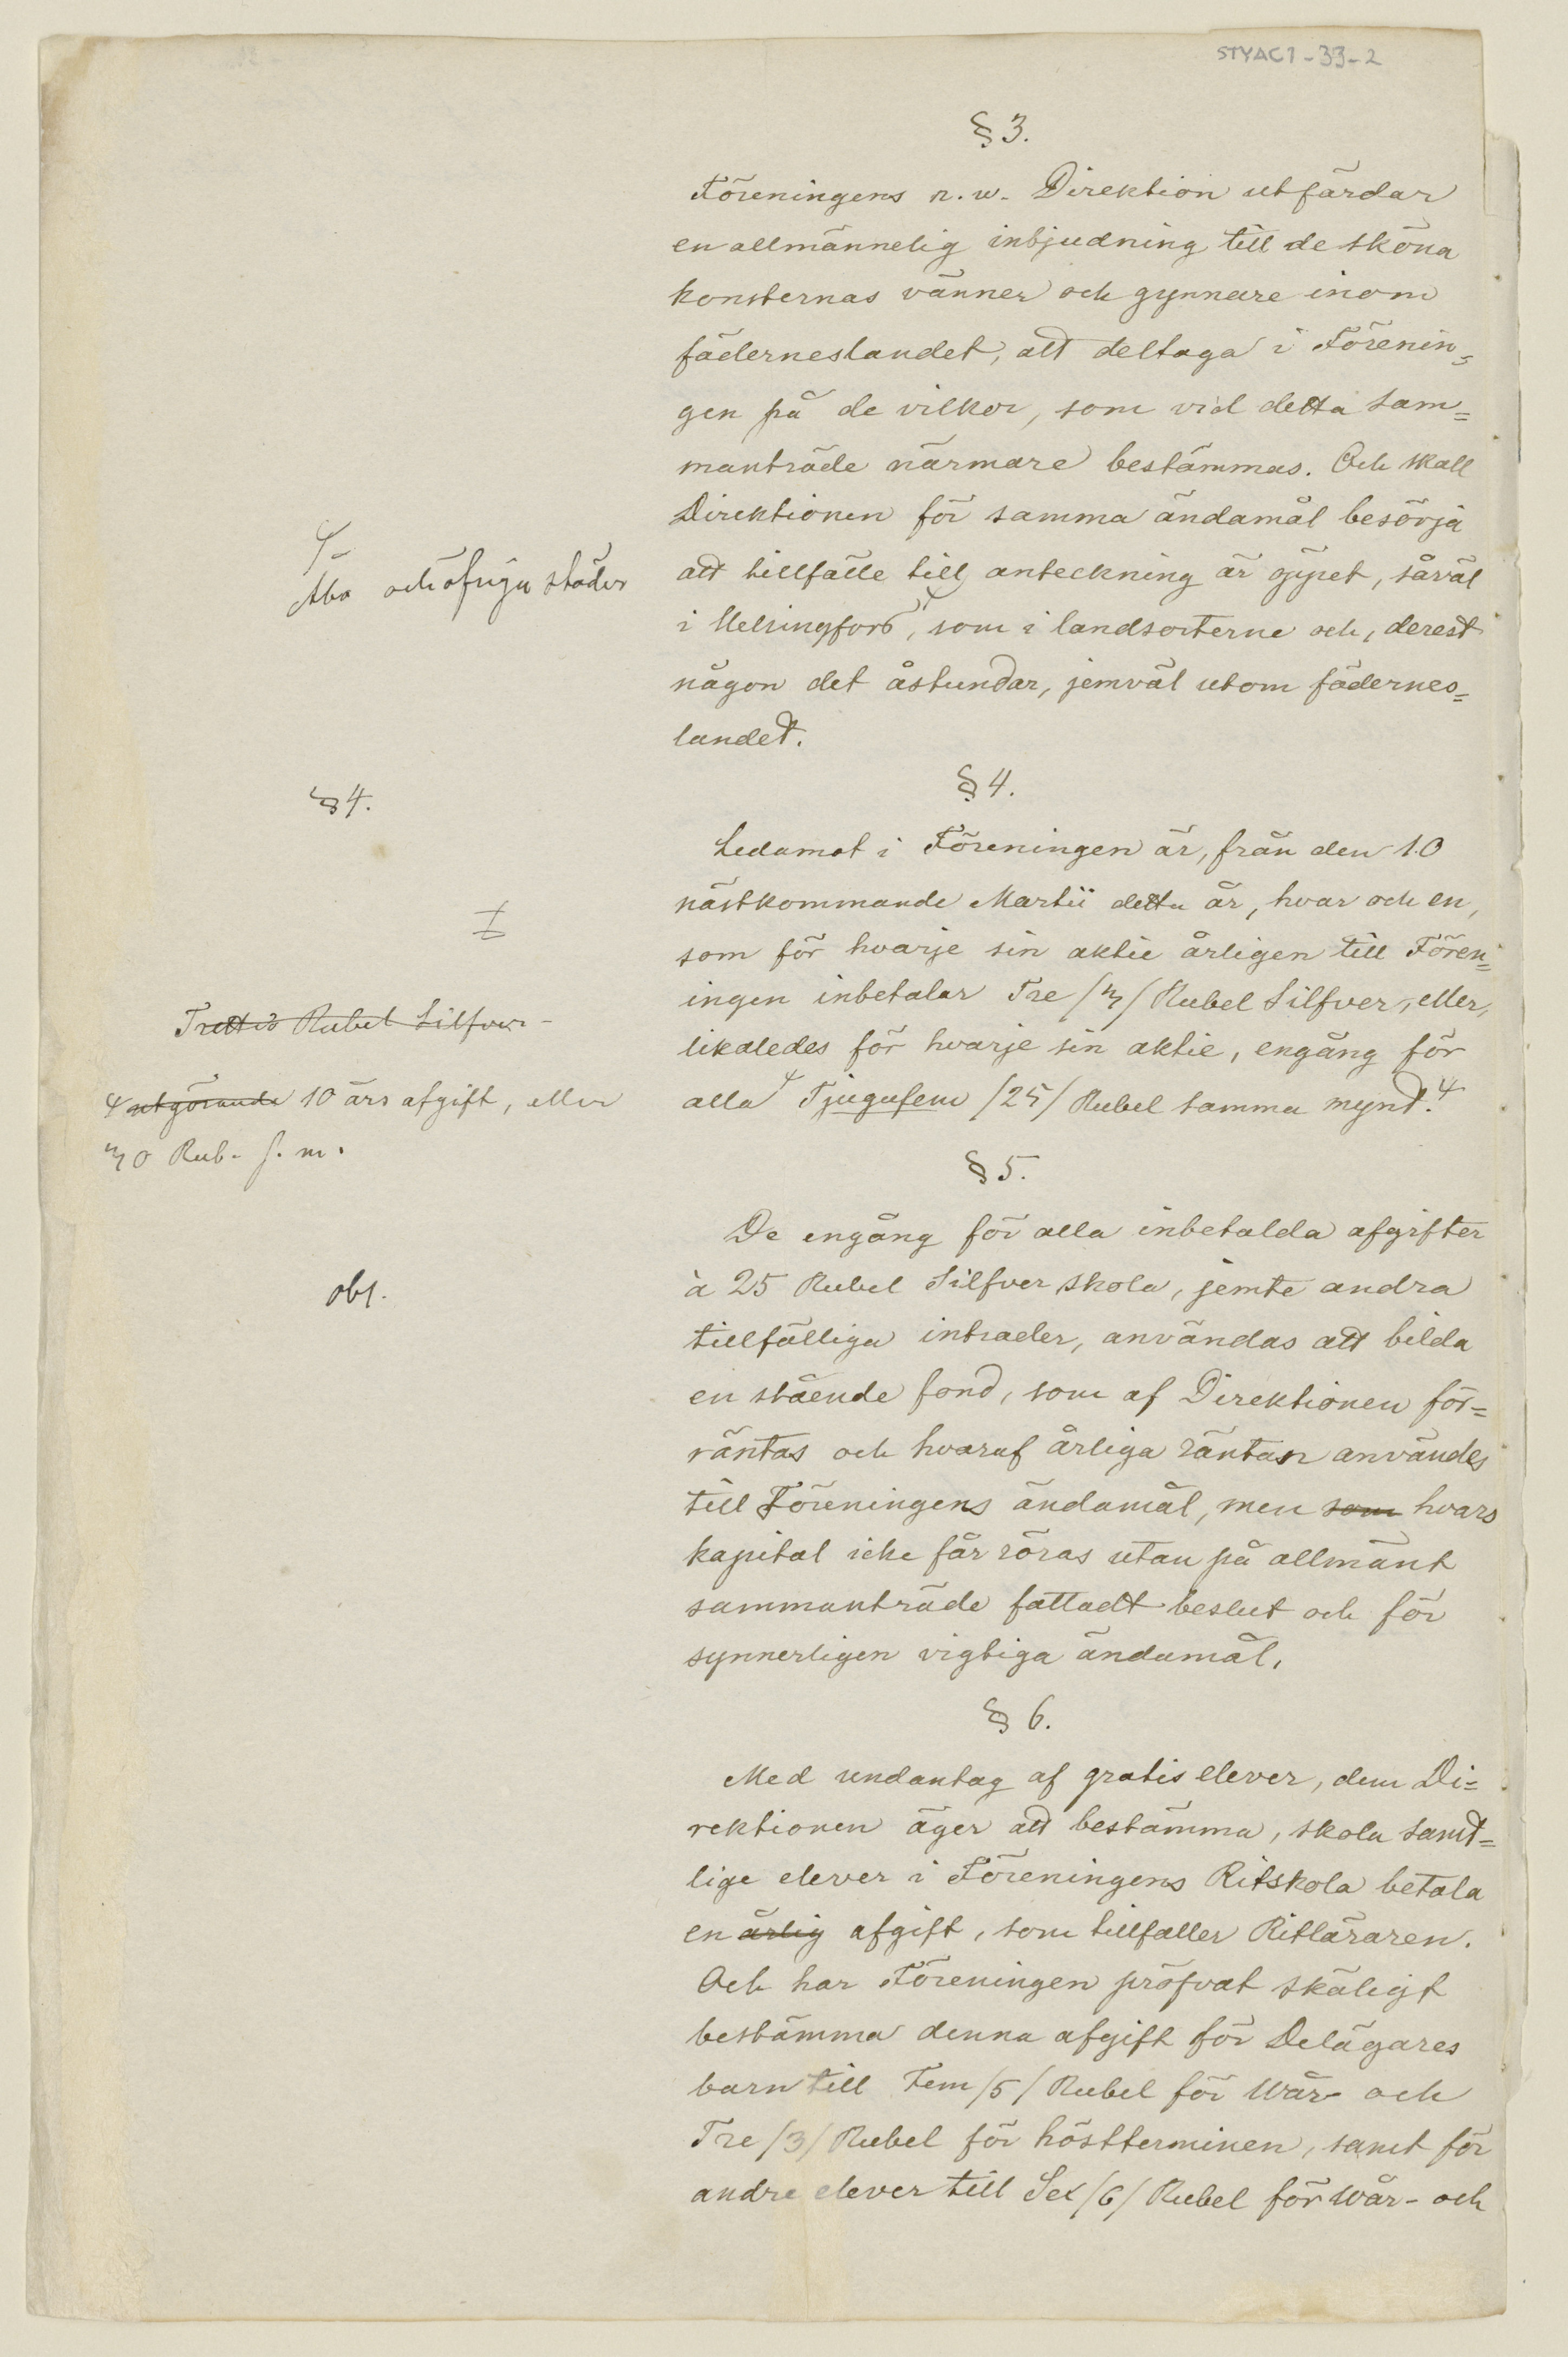 STYAC1-33-2
§ 3.
Föreningens n. w. Direktion utfärdar
en allmännelig inbjudning till de sköna
konsternas vänner och gynnare inom
fäderneslandet, att deltaga i Förenin=
gen på de vilkor, som vid detta sam=
manträde närmare bestämmas. Och skall
Direktionen för samma ändamål besörja
att tillfälle till anteckning är öppet, såväl
Åbo och öfriga städer
i Helsingfors, som i landsorterne och, derest
någon det åstundar, jemväl utom fädernes=
landet.
§ 4.
§ 4.
Ledamot i Föreningen är, från den 10
nästkommande Martii detta år, hvar och en,
som för hvarje sin aktie årligen till Fören=
ingen inbetalar Tre /3/ Rubel Silfver, eller,
Trettio Rubel Silfver
likaledes för hvarje sin aktie, engång för
alla Tjugufem /25/ Rubel samma mynt.
utgörande 10 års afgift, eller
30 Rub. s. m.
§ 5.
De engång för alla inbetalda afgifter
à 25 Rubel Silfver skola, jemte andra
obs.
tillfälliga intrader, användas att bilda
en stående fond, som af Direktionen för=
räntas och hvaraf årliga räntan användes
till Föreningens ändamål, men som hvars
kapital icke får röras utan på allmänt
sammanträde fattadt beslut och för
synnerligen vigtiga ändamål.
§ 6.
Med undantag af gratis elever, dem Di=
rektionen äger att bestämma, skola samt=
lige elever i Föreningens Ritskola betala
en årlig afgift, som tillfaller Ritläraren.
Och har Föreningen pröfvat skäligt
bestämma denna afgift för Delägares
barn till Fem /5/ Rubel för Wår- och
Tre /3/ Rubel för höstterminen, samt för
andre elever till Sex /6/ Rubel för Wår- och